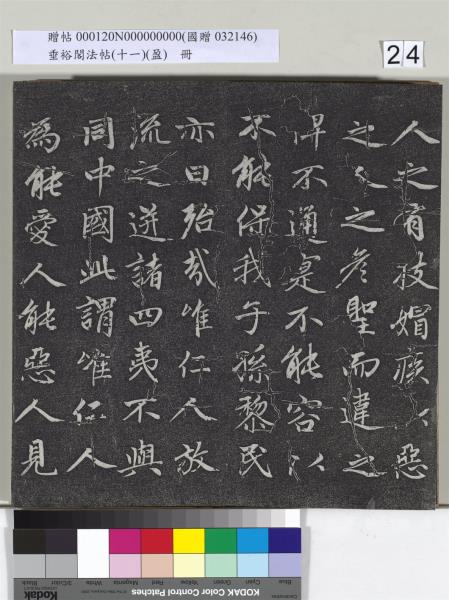 贈帖 000120N000000000(國贈 032146)
垂裕閣法帖(十一)(盈) 冊
24
人之有技媢疾以惡
之人之彥聖而違之
俾不通寔不能容以
不能保我子孫黎民
亦曰殆哉唯仁人放
流之迸諸四夷不與
同中國此謂唯仁人
為能愛人能惡人見
Blue Cyan Green Yellow Red Magenta White 3/Color Black
KODAK Color Control Patches
Kodak